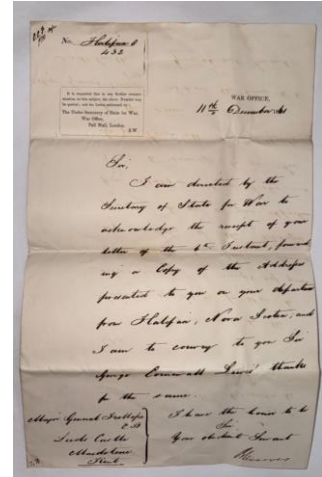 No. Halifax
432
It is requested that in any further commu-
nication on this subject, the above Number may
be quoted; and the Letter addressed to;
The Under Secretary of State for War,
War Office,
Pall Mall, London,
S.W.
WAR OFFICE,
11th December
Sir,
I am directed by the
Secretary of State for War to
acknowledge the receipt of your
letter of the 6th Instant, forward
ing a Copy of the Address
presented to you on your departure
from Halifax, Nova Scotia; and
I am to convey to you Sir
George Cornewall Lewis' thanks
for the same.
I have the honor to be
Sir
Your obedient Servant
Major General Trollope
C.B.
Leeds Castle
Maidstone
Kent